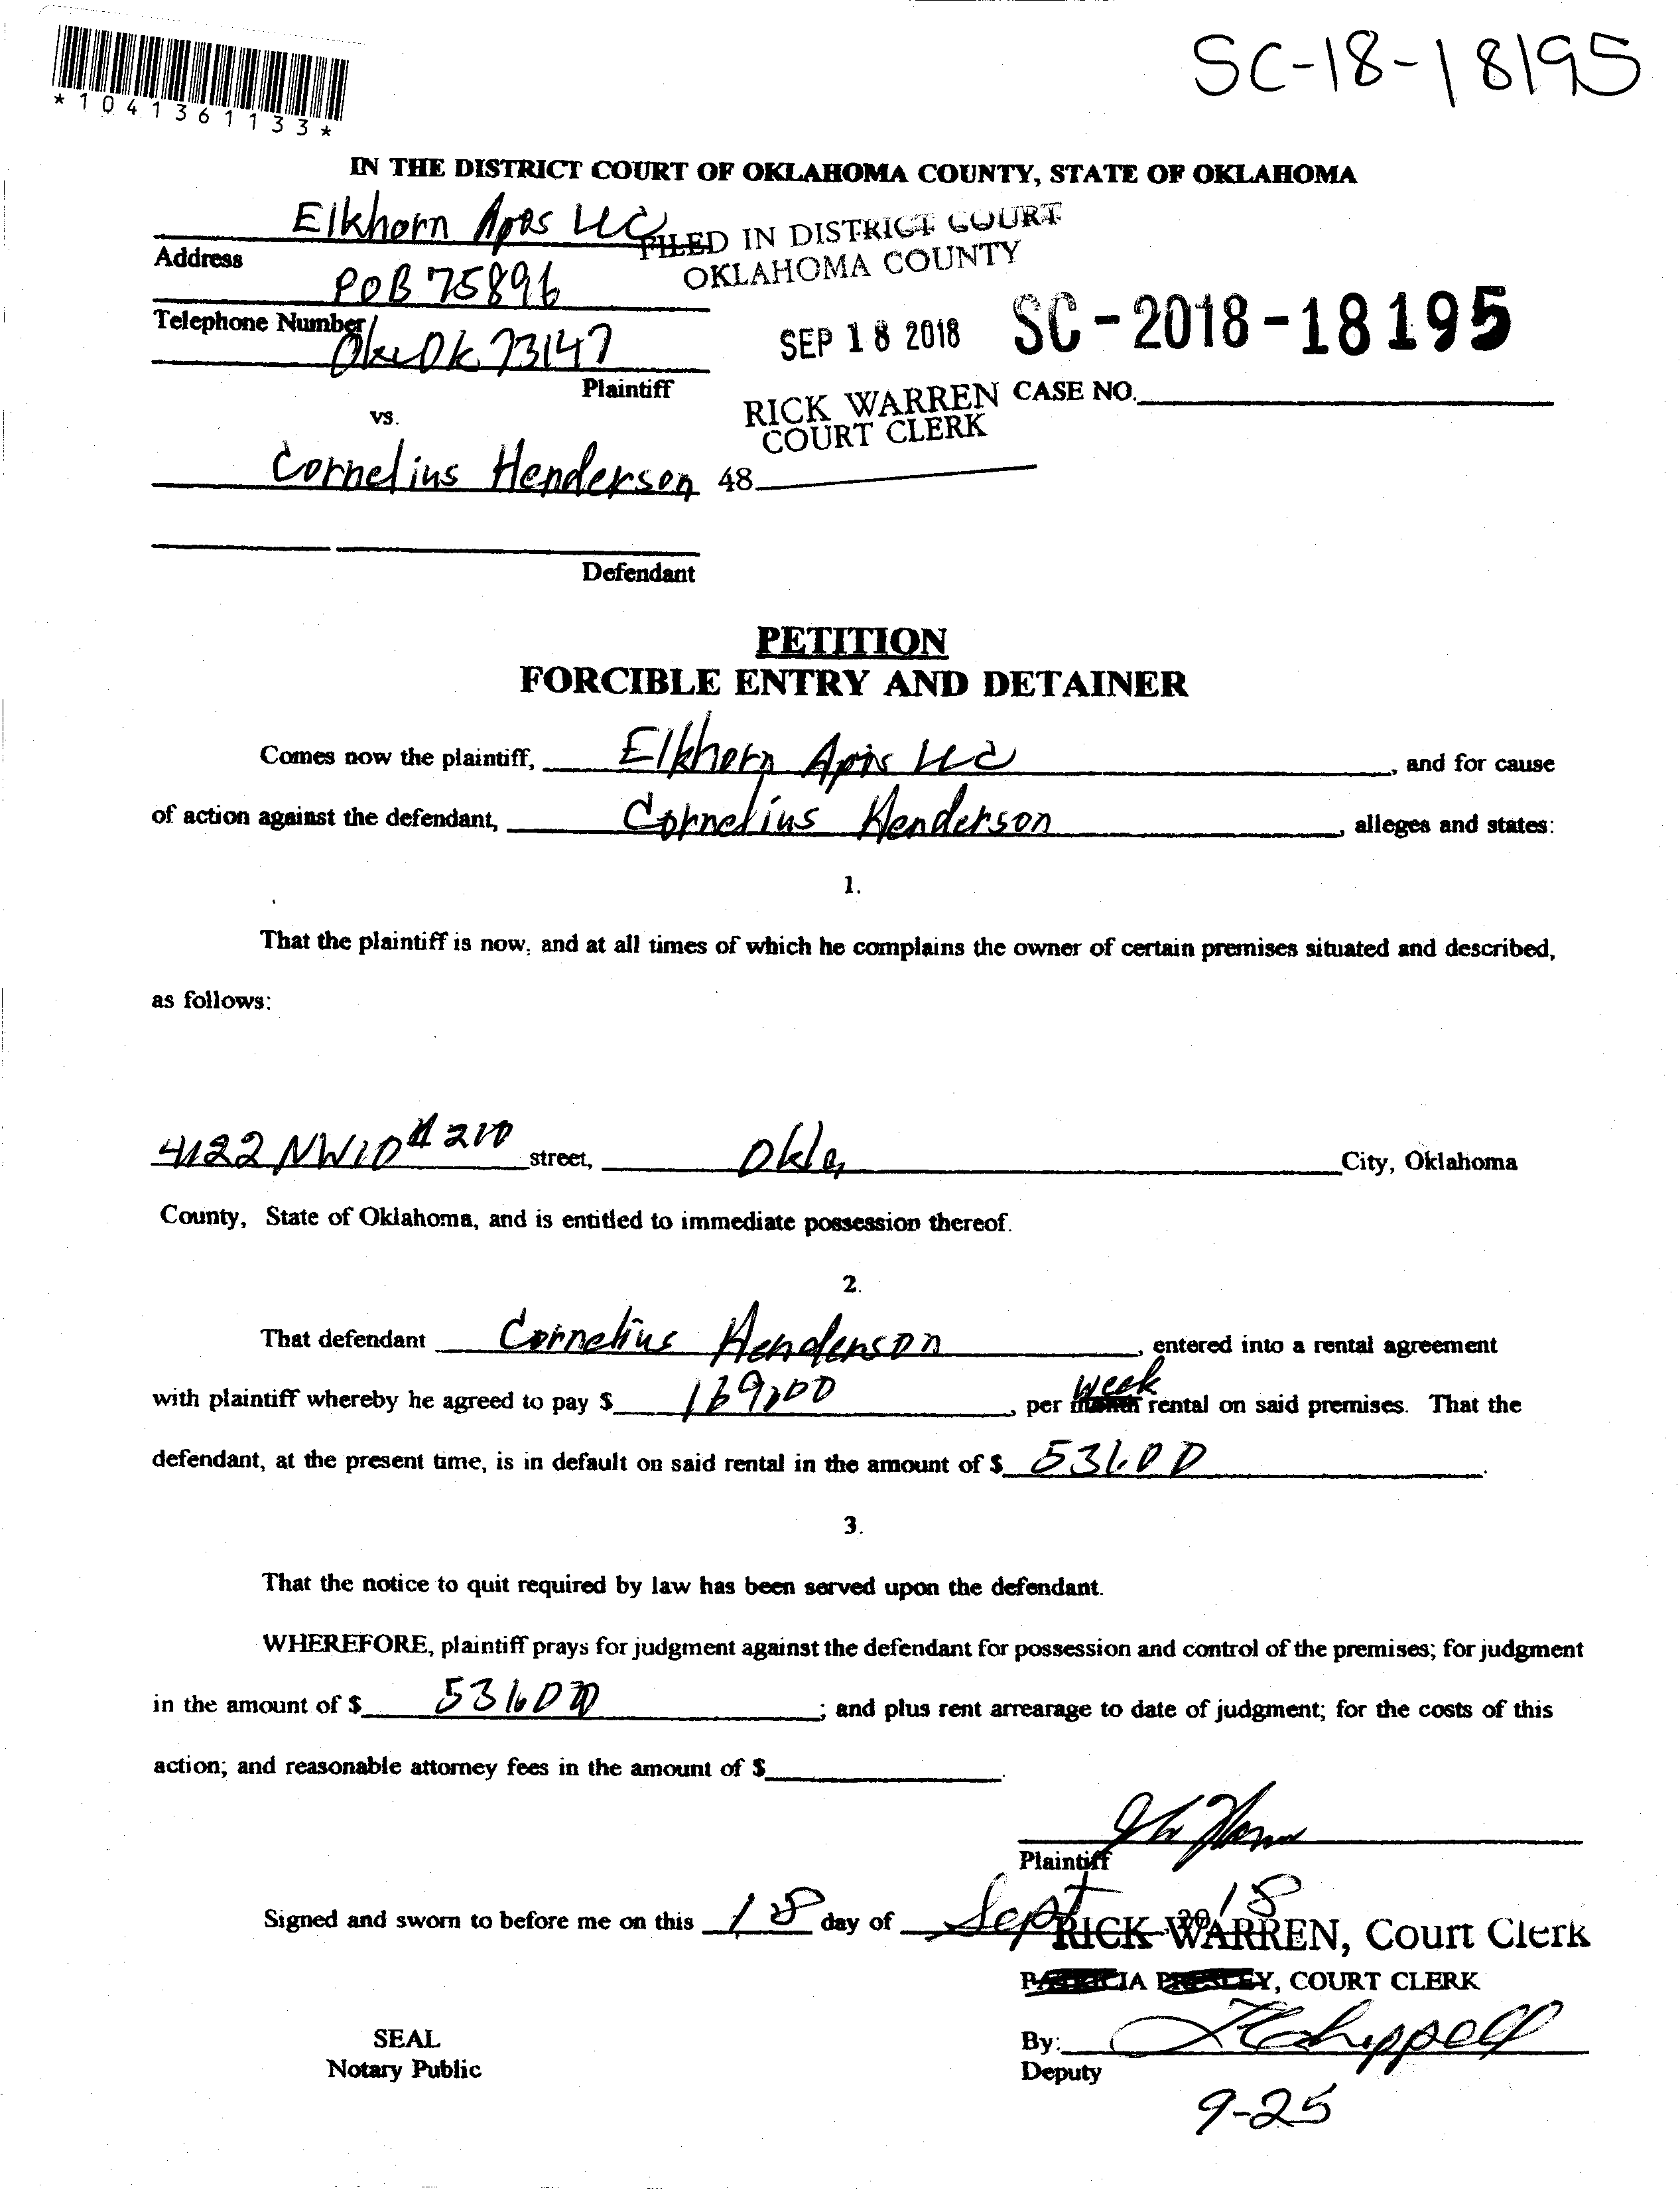 SC-18-18195
*1041361133*
IN THE DISTRICT COURT OF OKLAHOMA COUNTY, STATE OF OKLAHOMA
Elkhorn Apts LLC
FILED IN DISTRICT COURT
OKLAHOMA COUNTY
Address
POB 75896
Telephone Number
Ok 73147
SEP 18 2018
SC-2018-18195
Plaintiff
RICK WARREN
COURT CLERK
CASE NO.
vs.
Cornelius Henderson
48
Defendant
PETITION
FORCIBLE ENTRY AND DETAINER
Comes now the plaintiff, Elkhorn Apts LLC, and for cause
of action against the defendant, Cornelius Henderson, alleges and states:
1.
That the plaintiff is now, and at all times of which he complains the owner of certain premises situated and described,
as follows:
4122 NW10 #210 street, Okla City, Oklahoma
County, State of Oklahoma, and is entitled to immediate possession thereof.
2.
That defendant Cornelius Henderson, entered into a rental agreement
with plaintiff whereby he agreed to pay $ , per week rental on said premises. That the
defendant, at the present time, is in default on said rental in the amount of $ .
3.
That the notice to quit required by law has been served upon the defendant.
WHEREFORE, plaintiff prays for judgment against the defendant for possession and control of the premises; for judgment
in the amount of $ ; and plus rent arrearage to date of judgment; for the costs of this
action; and reasonable attorney fees in the amount of $ .
Plaintiff
Signed and sworn to before me on this 18 day of Sept 2018
RICK WARREN, Court Clerk
, COURT CLERK
SEAL
Notary Public
By:
Deputy
9-25